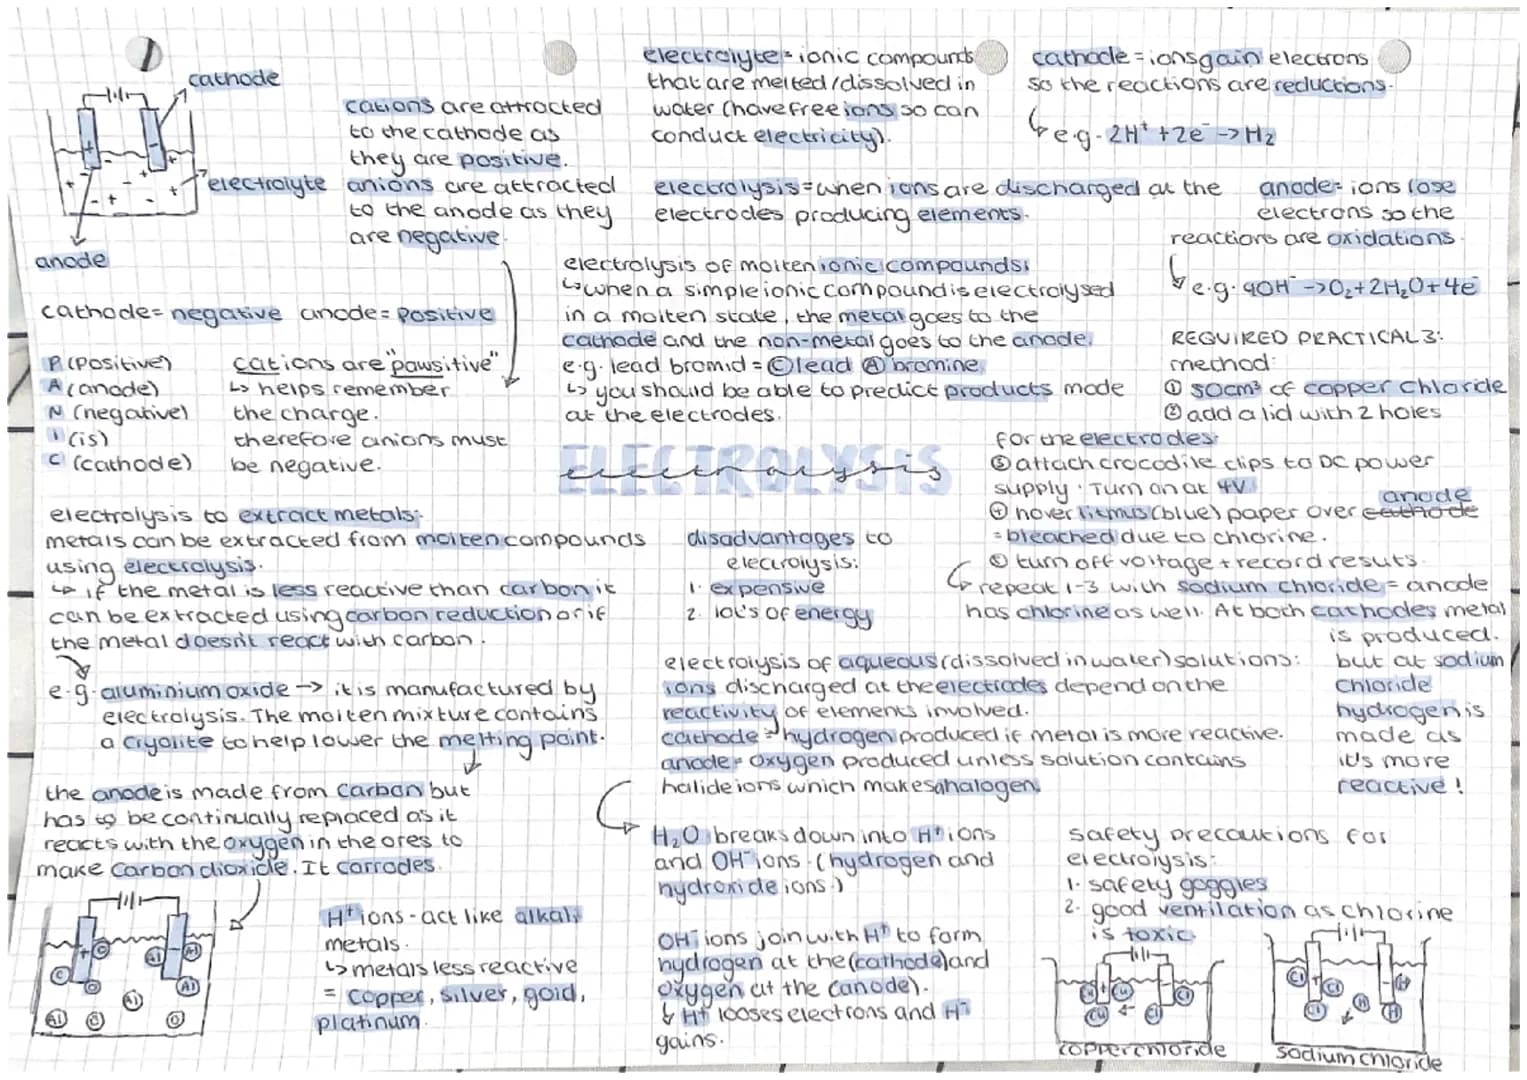 cathode
electrolyte
anode
cations are attracted
to the cathode as
they are positive.
anions are attracted
to the anode as they
are negative.
electrolyte = ionic compounds
that are melted/dissolved in
water (have free ions so can
conduct electricity).
cathode = ions gain electrons
so the reactions are reductions.
e.g. 2H⁺ + 2e⁻ -> H₂
electrolysis = when ions are discharged at the
electrodes producing elements.
anode = ions lose
electrons so the
reactions are oxidations.
e.g. 4OH⁻ -> O₂ + 2H₂O + 4e⁻
cathode = negative anode = positive
P (positive)
A (anode)
N (negative)
I (is)
C (cathode)
cations are "pawsitive"
↳ helps remember
the charge.
therefore anions must
be negative.
electrolysis of molten ionic compounds:
↳ when a simple ionic compound is electrolysed
in a molten state, the metal goes to the
cathode and the non-metal goes to the anode.
e.g. lead bromid = Ⓒ lead Ⓐ bromine
↳ you should be able to predict products made
at the electrodes.
ELECTROLYSIS
electrolysis
REQUIRED PRACTICAL 3:
method:
① 50cm³ of copper chloride
② add a lid with 2 holes
for the electrodes
③ attach crocodile clips to DC power
supply. Turn on at 4V
anode
④ hover litmus (blue) paper over cathode
= bleached due to chlorine.
⑤ turn off voltage + record resuts.
repeat 1-3 with sodium chloride = anode
has chlorine as well. At both cathodes metal
is produced.
but at sodium
chloride
hydrogen is
made as
it's more
reactive!
electrolysis to extract metals:
metals can be extracted from molten compounds
using electrolysis.
↳ if the metal is less reactive than carbon it
can be extracted using carbon reduction or if
the metal doesn't react with carbon.
e.g. aluminium oxide -> it is manufactured by
electrolysis. The molten mixture contains
a cryolite to help lower the melting point.
the anode is made from carbon but
has to be continually replaced as it
reacts with the oxygen in the ores to
make carbon dioxide. It corrodes.
disadvantages to
electrolysis:
1. expensive
2. lot's of energy
electrolysis of aqueous (dissolved in water) solutions:
ions discharged at the electrodes depend on the
reactivity of elements involved.
cathode = hydrogen produced if metal is more reactive.
anode = oxygen produced unless solution contains
halide ions which makes a halogen
H₂O breaks down into H⁺ ions
and OH⁻ ions. (hydrogen and
hydroxide ions.)
OH⁻ ions join with H⁺ to form
hydrogen at the (cathode) and
oxygen at the (anode).
↳ H⁺ looses electrons and H⁻
gains.
H⁺ ions - act like alkali
metals.
↳ metals less reactive
= copper, silver, gold,
platinum.
safety precautions for
electrolysis:
1. safety goggles
2. good ventilation as chlorine
is toxic.
copper chloride
sodium chloride